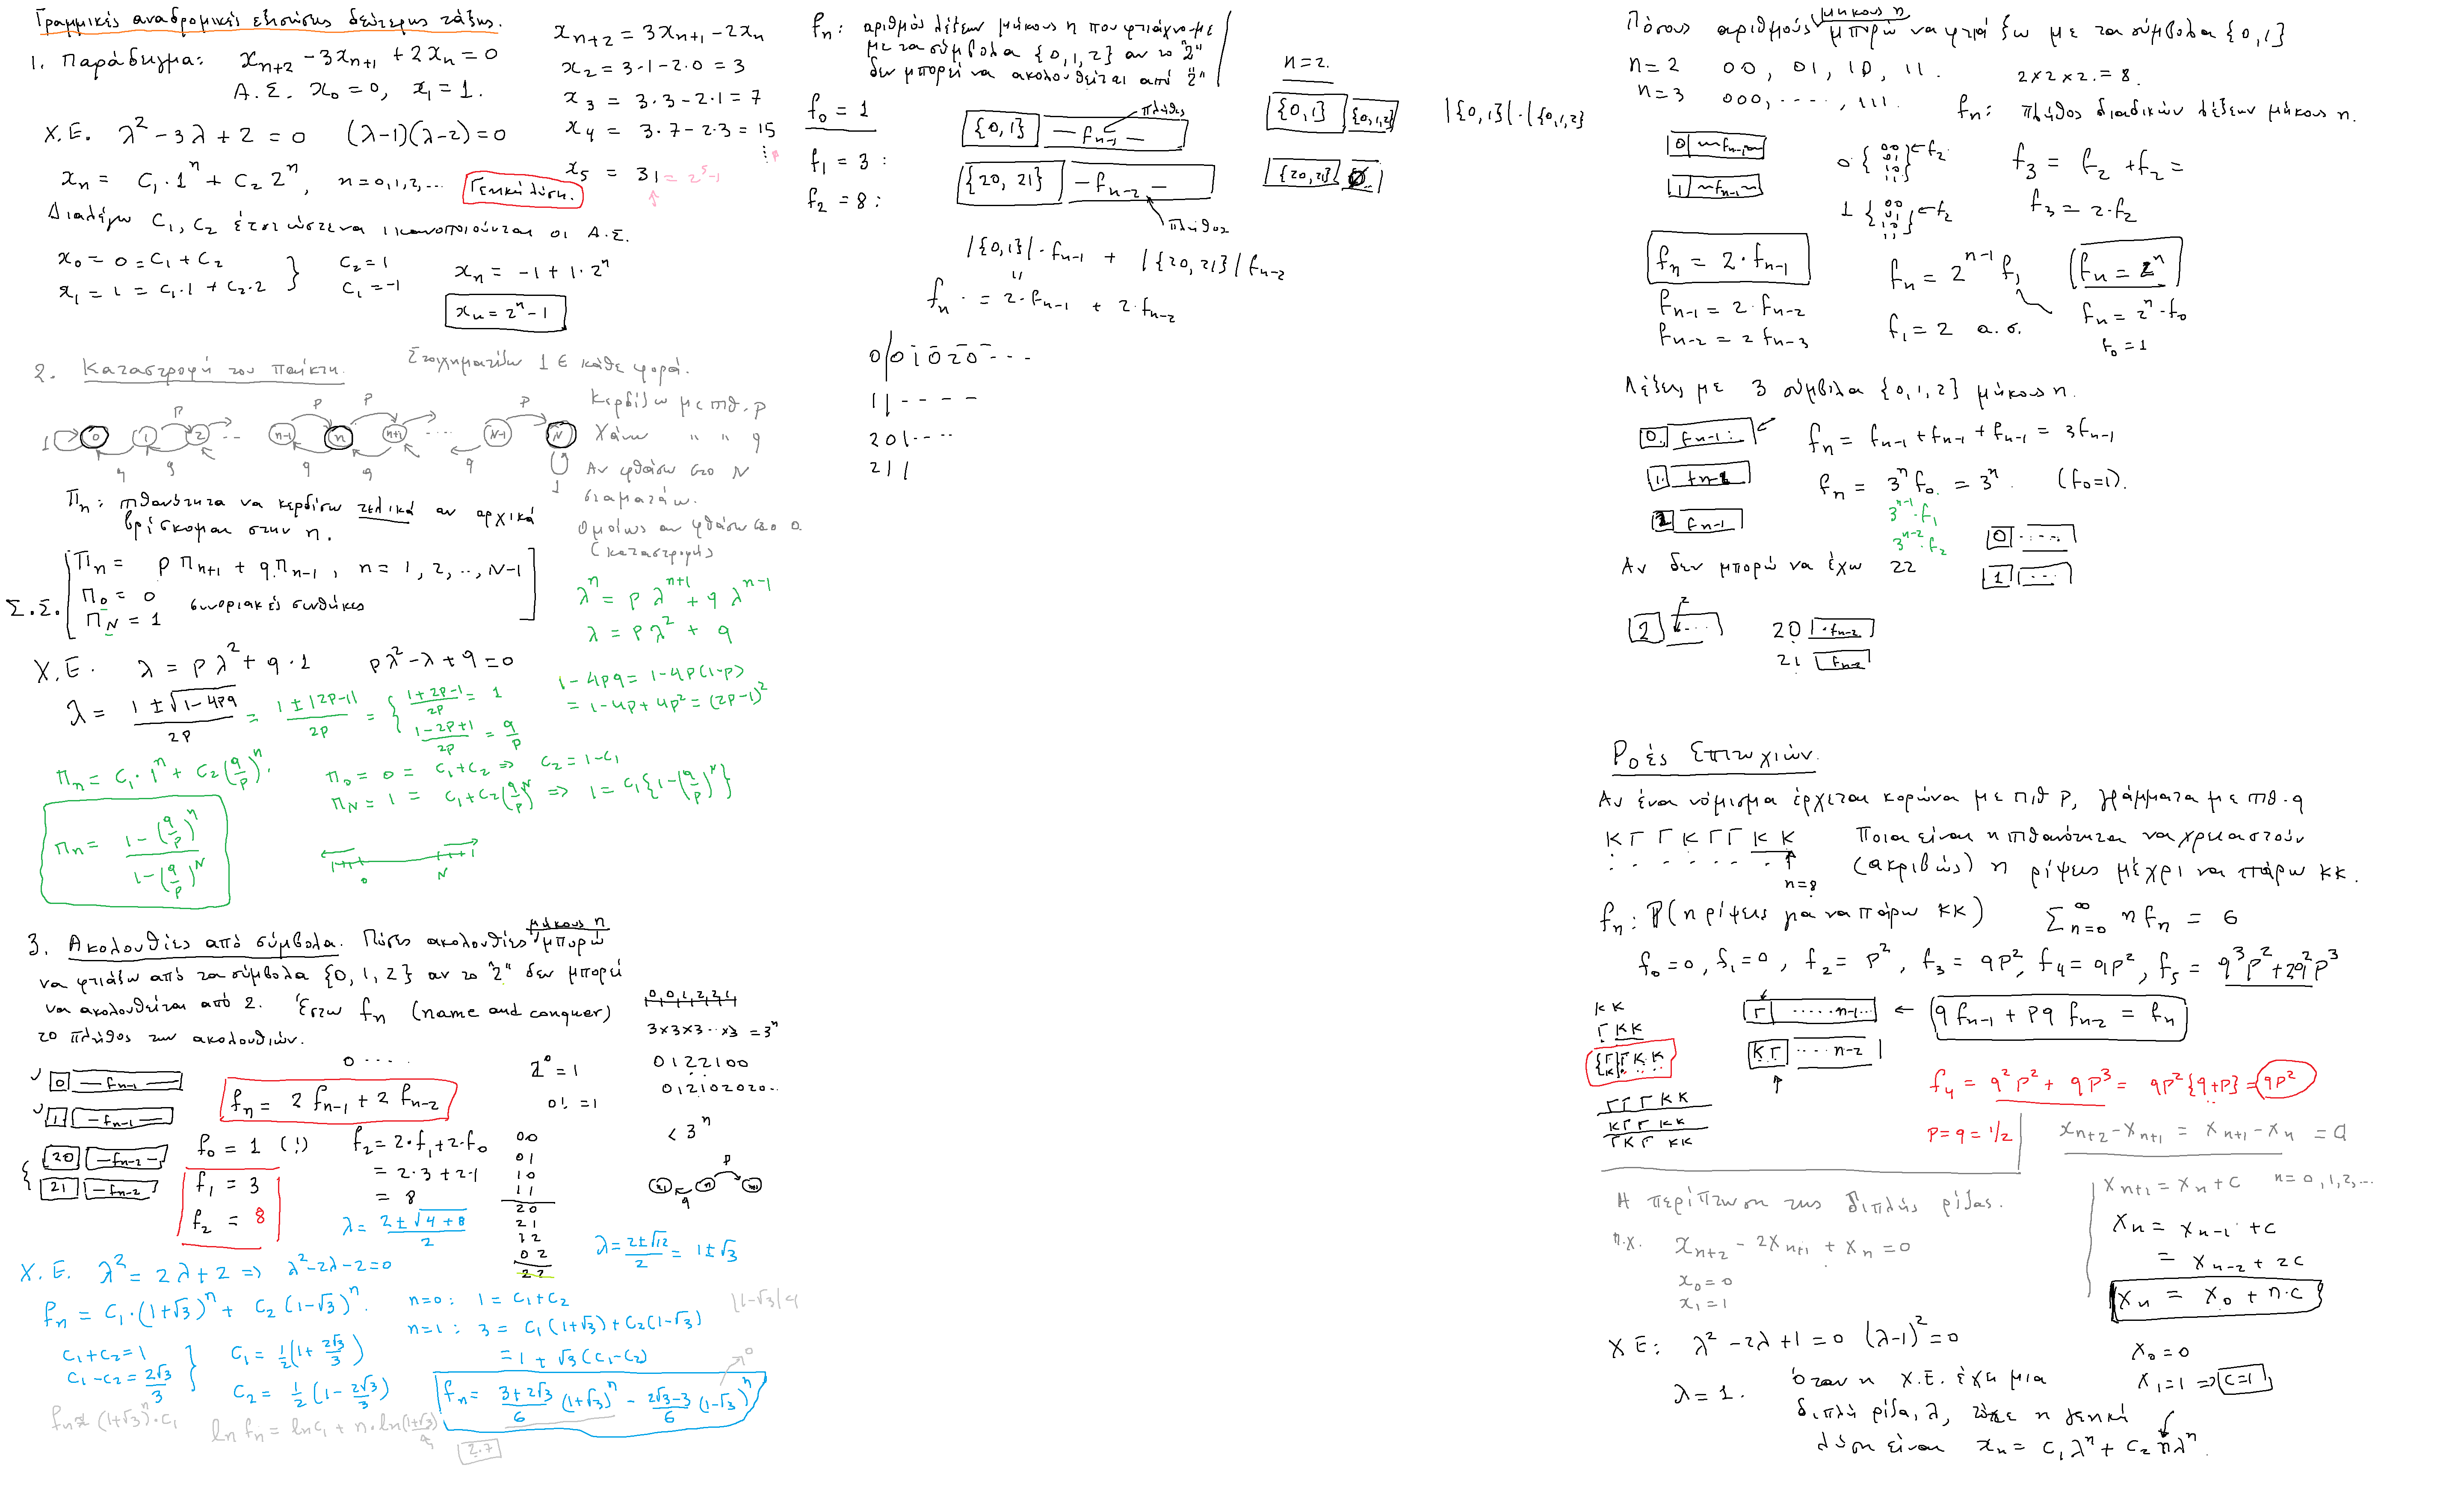 Γραμμικές αναδρομικές εξισώσεις δεύτερης τάξης.
1. Παράδειγμα: x_{n+2} - 3x_{n+1} + 2x_n = 0
Α.Σ. x_0 = 0, x_1 = 1.
Χ.Ε. λ² - 3λ + 2 = 0 (λ-1)(λ-2) = 0
x_n = C_1·1^n + C_2 2^n, n = 0,1,2,... Γενική λύση.
Διαλέγω C_1, C_2 έτσι ώστε να ικανοποιούνται οι Α.Σ.
x_0 = 0 = C_1 + C_2
x_1 = 1 = C_1·1 + C_2·2
C_2 = 1
C_1 = -1
x_n = -1 + 1·2^n
x_n = 2^n - 1
x_{n+2} = 3x_{n+1} - 2x_n
x_2 = 3·1 - 2·0 = 3
x_3 = 3·3 - 2·1 = 7
x_4 = 3·7 - 2·3 = 15
x_5 = 31 = 2^5 - 1
2. Καταστροφή του παίκτη. Στοιχηματίζω 1 € κάθε φορά.
1 0 1 2 ... n-1 n n+1 ... N-1 N
p p p p
q q q q q
1
Κερδίζω με πιθ. p
Χάνω " " q
Αν φθάσω στο N
σταματάω.
Ομοίως αν φθάσω στο 0.
(καταστροφή)
Π_n: πιθανότητα να κερδίσω τελικά αν αρχικά
βρίσκομαι στην n.
Π_n = p Π_{n+1} + q Π_{n-1}, n = 1, 2, .., N-1
Σ.Σ. Π_0 = 0 συνοριακές συνθήκες
Π_N = 1
λ^n = p λ^{n+1} + q λ^{n-1}
λ = pλ² + q
Χ.Ε. λ = pλ² + q·1 pλ² - λ + q = 0
λ = (1 ± √(1-4pq))/2p = (1 ± |2p-1|)/2p = { (1+2p-1)/2p = 1
(1-2p+1)/2p = q/p
1 - 4pq = 1 - 4p(1-p)
= 1 - 4p + 4p² = (2p-1)²
Π_n = C_1·1^n + C_2 (q/p)^n.
Π_0 = 0 = C_1 + C_2 ⇒ C_2 = 1-C_1
Π_N = 1 = C_1 + C_2 (q/p)^N ⇒ 1 = C_1{1 - (q/p)^N}
Π_n = (1 - (q/p)^n)/(1 - (q/p)^N)
0 N
3. Ακολουθίες από σύμβολα. Πόσες ακολουθίες μήκους n μπορώ
να φτιάξω από τα σύμβολα {0, 1, 2} αν το "2" δεν μπορεί
να ακολουθείται από 2. Έστω f_n (name and conquer)
το πλήθος των ακολουθιών.
0,0,1,2,2,1
3×3×3···×3 = 3^n
0122100
012102020..
< 3^n
0 - f_{n-1} -
1 - f_{n-1} -
20 - f_{n-2} -
21 - f_{n-2} -
0 ····
f_n = 2 f_{n-1} + 2 f_{n-2}
2^0 = 1
0! = 1
f_0 = 1 (!)
f_1 = 3
f_2 = 8
f_2 = 2·f_1 + 2·f_0
= 2·3 + 2·1
= 8
00
01
10
11
20
21
12
02
22
n-1 n n+1
p
q
λ = (2 ± √(4+8))/2
λ = (2±√12)/2 = 1 ± √3
Χ.Ε. λ² = 2λ + 2 ⇒ λ² - 2λ - 2 = 0
f_n = C_1·(1+√3)^n + C_2 (1-√3)^n.
n=0: 1 = C_1 + C_2
n=1: 3 = C_1(1+√3) + C_2(1-√3)
= 1 + √3(C_1-C_2)
|1-√3|<1
C_1 + C_2 = 1
C_1 - C_2 = 2√3/3
C_1 = 1/2(1 + 2√3/3)
C_2 = 1/2(1 - 2√3/3)
f_n = (3+2√3)/6 (1+√3)^n - (2√3-3)/6 (1-√3)^n
0
f_n ≈ (1+√3)^n·C_1
ln f_n = ln C_1 + n·ln(1+√3)
2.7
f_n: αριθμός λέξεων μήκους n που φτιάχνομε
με τα σύμβολα {0,1,2} αν το "2"
δεν μπορεί να ακολουθείται από "2"
f_0 = 1
f_1 = 3 :
f_2 = 8 :
{0,1} - f_{n-1} - πλήθος
{20, 21} - f_{n-2} - πλήθος
|{0,1}|·f_{n-1} + |{20,21}| f_{n-2}
"
f_n = 2·f_{n-1} + 2·f_{n-2}
n=2.
{0,1} {0,1,2} |{0,1}|·|{0,1,2}
{20,21} ∅
0/01020···
11----
201····
211
Πόσους αριθμούς μήκους n μπορώ να φτιάξω με τα σύμβολα {0,1}
n=2 00, 01, 10, 11. 2×2×2. = 8.
n=3 000, ····, 111. f_n: πλήθος διαδικών λέξεων μήκους n.
0 ~f_{n-1}~
1 ~f_{n-1}~
0 { 00 01 10 11 } ← f_2
1 { 00 01 10 11 } ← f_2
f_3 = f_2 + f_2 =
f_3 = 2·f_2
f_n = 2·f_{n-1}
f_n = 2^{n-1} f_1
f_n = 2^n
f_{n-1} = 2·f_{n-2}
f_{n-2} = 2 f_{n-3}
f_1 = 2 α.σ.
f_n = 2^n·f_0
f_0 = 1
Λέξεις με 3 σύμβολα {0,1,2} μήκους n.
0. f_{n-1}
1. f_{n-1}
2 f_{n-1}
f_n = f_{n-1} + f_{n-1} + f_{n-1} = 3f_{n-1}
f_n = 3^n f_0. = 3^n. (f_0=1).
3^{n-1}·f_1
3^{n-2}·f_2
Αν δεν μπορώ να έχω 22
0 ·····
1 ···
2 ···
2
20 ·f_{n-2}
21 f_{n-2}
Ροές Επιτυχιών.
Αν ένα νόμισμα έρχεται κορώνα με πιθ p, γράμματα με πιθ. q
Κ Γ Γ Κ Γ Γ Κ Κ Ποια είναι η πιθανότητα να χρειαστούν
n=8 (ακριβώς) n ρίψεις μέχρι να πάρω ΚΚ.
f_n: P(n ρίψεις για να πάρω ΚΚ) Σ_{n=0}^∞ n f_n = 6
f_0=0, f_1=0, f_2 = p², f_3 = qp², f_4 = qp², f_5 = q³p² + 2q²p³
ΚΚ
ΓΚΚ
{Γ Κ} Γ Κ Κ
Γ Γ Γ Κ Κ
Κ Γ Γ Κ Κ
Γ Κ Γ Κ Κ
Γ ·····n-1··· ← q f_{n-1} + pq f_{n-2} = f_n
ΚΓ ····n-2
f_4 = q²p² + qp³ = qp²{q+p} = qp²
p=q=1/2
x_{n+2} - x_{n+1} = x_{n+1} - x_n = a
Η περίπτωση της διπλής ρίζας.
π.χ. x_{n+2} - 2x_{n+1} + x_n = 0
x_0 = 0
x_1 = 1
x_{n+1} = x_n + c n=0,1,2,...
x_n = x_{n-1} + c
= x_{n-2} + 2c
x_n = x_0 + n·c
x_0 = 0
x_1 = 1 ⇒ c=1
ΧΕ: λ² - 2λ + 1 = 0 (λ-1)² = 0
λ = 1.
Όταν η Χ.Ε. έχει μια
διπλή ρίζα, λ, τότε η γενική
λύση είναι x_n = C_1 λ^n + C_2 nλ^n.